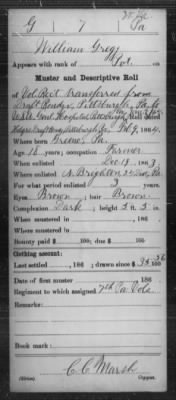 G | 7 | Pa
William Gregg
Appears with rank of Pvt. on
Muster and Descriptive Roll
of Vol. Rect. transferred from
Draft Rendz., Pittsburgh, Pa. to
U.S.A. Genl. Hospital Pittsburgh Roll dated
Pittsburgh Feb 9, 1864.
Where born Greene, Pa.
Age 18 years; occupation Farmer
When enlisted Dec 19, 1863.
Where enlisted N. Brighton Pa.
For what period enlisted 3 years.
Eyes Brown; hair Brown
Complexion Dark; height 5 ft. 5 in.
When mustered in , 186 .
Where mustered in
Bounty paid $ 100; due $ 100
Clothing account:
Last settled , 186 ; drawn since $ 34 56/100
Date of first muster 186 .
Regiment to which assigned 7th Pa Vols
Remarks:
Book mark:
C. C. Marsh
Copyist.